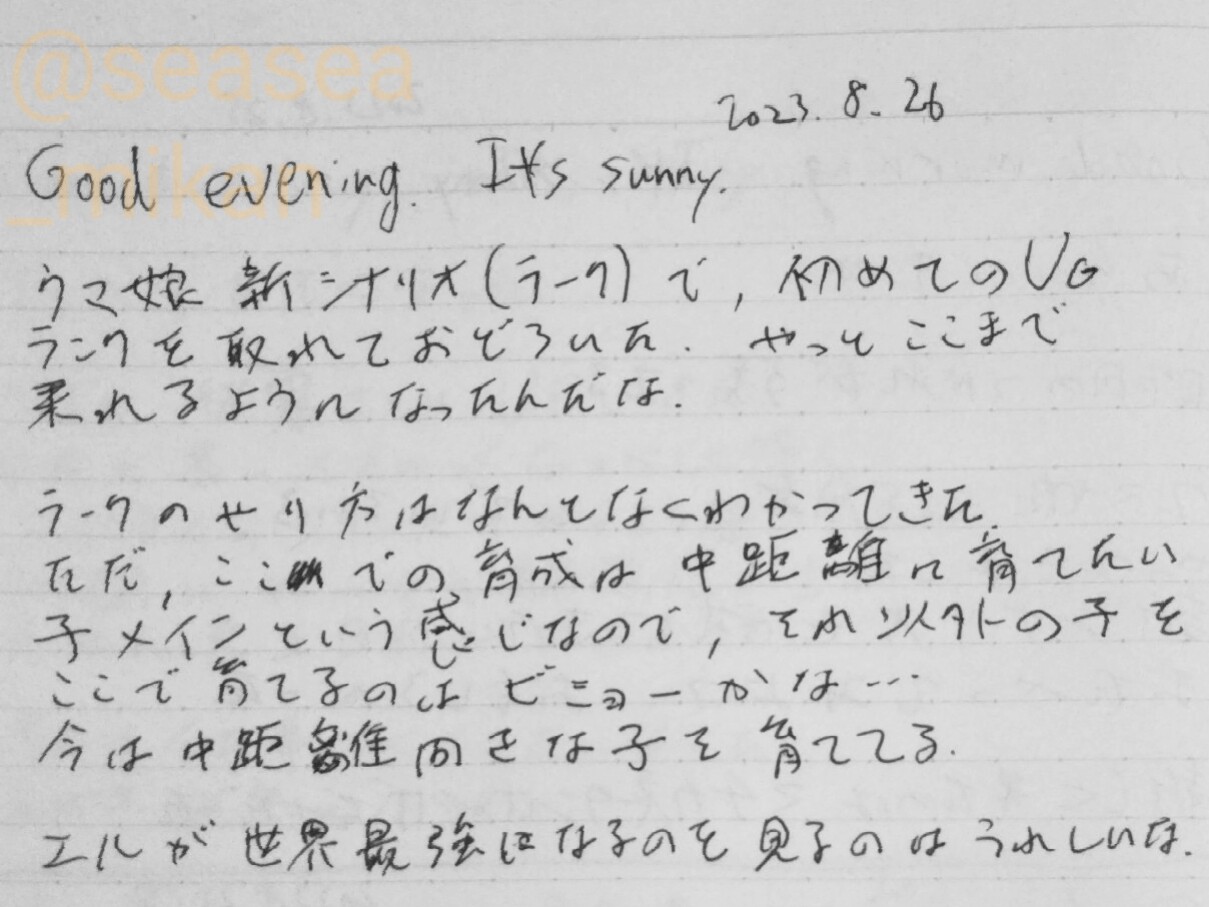 @seasea
_mikan
2023. 8. 26
Good evening. It's sunny.
ウマ娘 新シナリオ(ラーク)で, 初めてのUG
ランクを取れておどろいた. やっとここまで
来れるようになったんだな.
ラークのやり方はなんとなくわかってきた.
ただ, ここでの育成は中距離に育てたい
子メインという感じなので, それ以外の子を
ここで育てるのはビミョーかな…
今は中距離向きな子を育ててる.
エルが世界最強になるのを見るのはうれしいな.